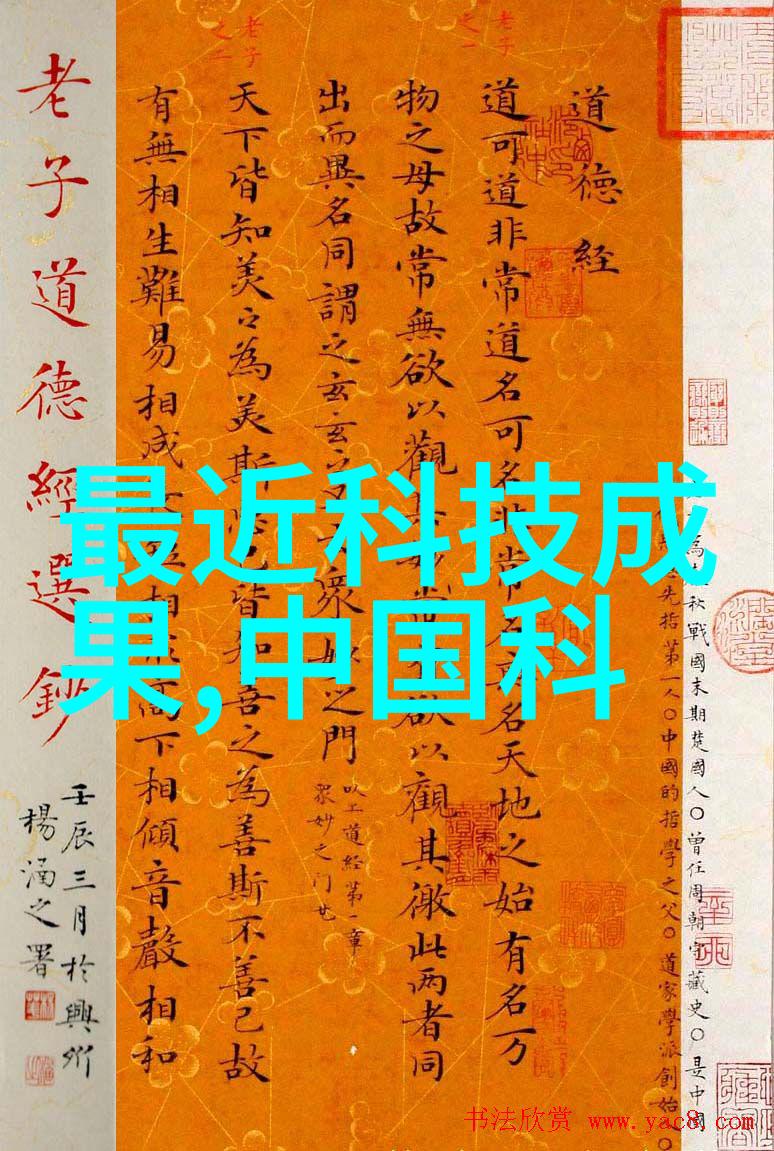 最近科技成
果,中国科
老子
之一
老子
之二
道德经
道可道非常道名可名非常名無名天地之始有名万
物之母故常無欲以觀其妙常有欲以觀其徼此两者同
出而異名同謂之玄玄之又玄衆妙之門
以上道经第一章
天下皆知美之為美斯恶已皆知善之為善斯不善已故
有無相生難易相成長短相形高下相傾音聲相和
老子道德經選鈔
壬辰三月於興
楊涵之署
秋戰國末期楚國人〇曾任周朝守藏史〇是中國
先指第一人〇中國的哲學之父〇道家學派創始
书法欣赏 www.yac8.com